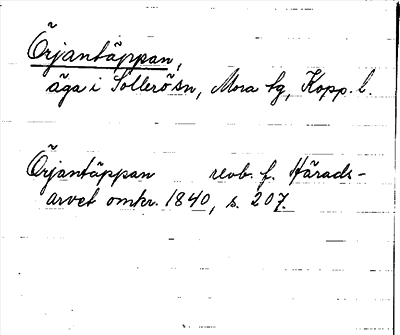 Örjantäppan,
äga i Sollerö sn, Mora tg, Kopp. l.
Örjantäppan reob. f. Härads-
arvet omkr. 1840, s. 207.